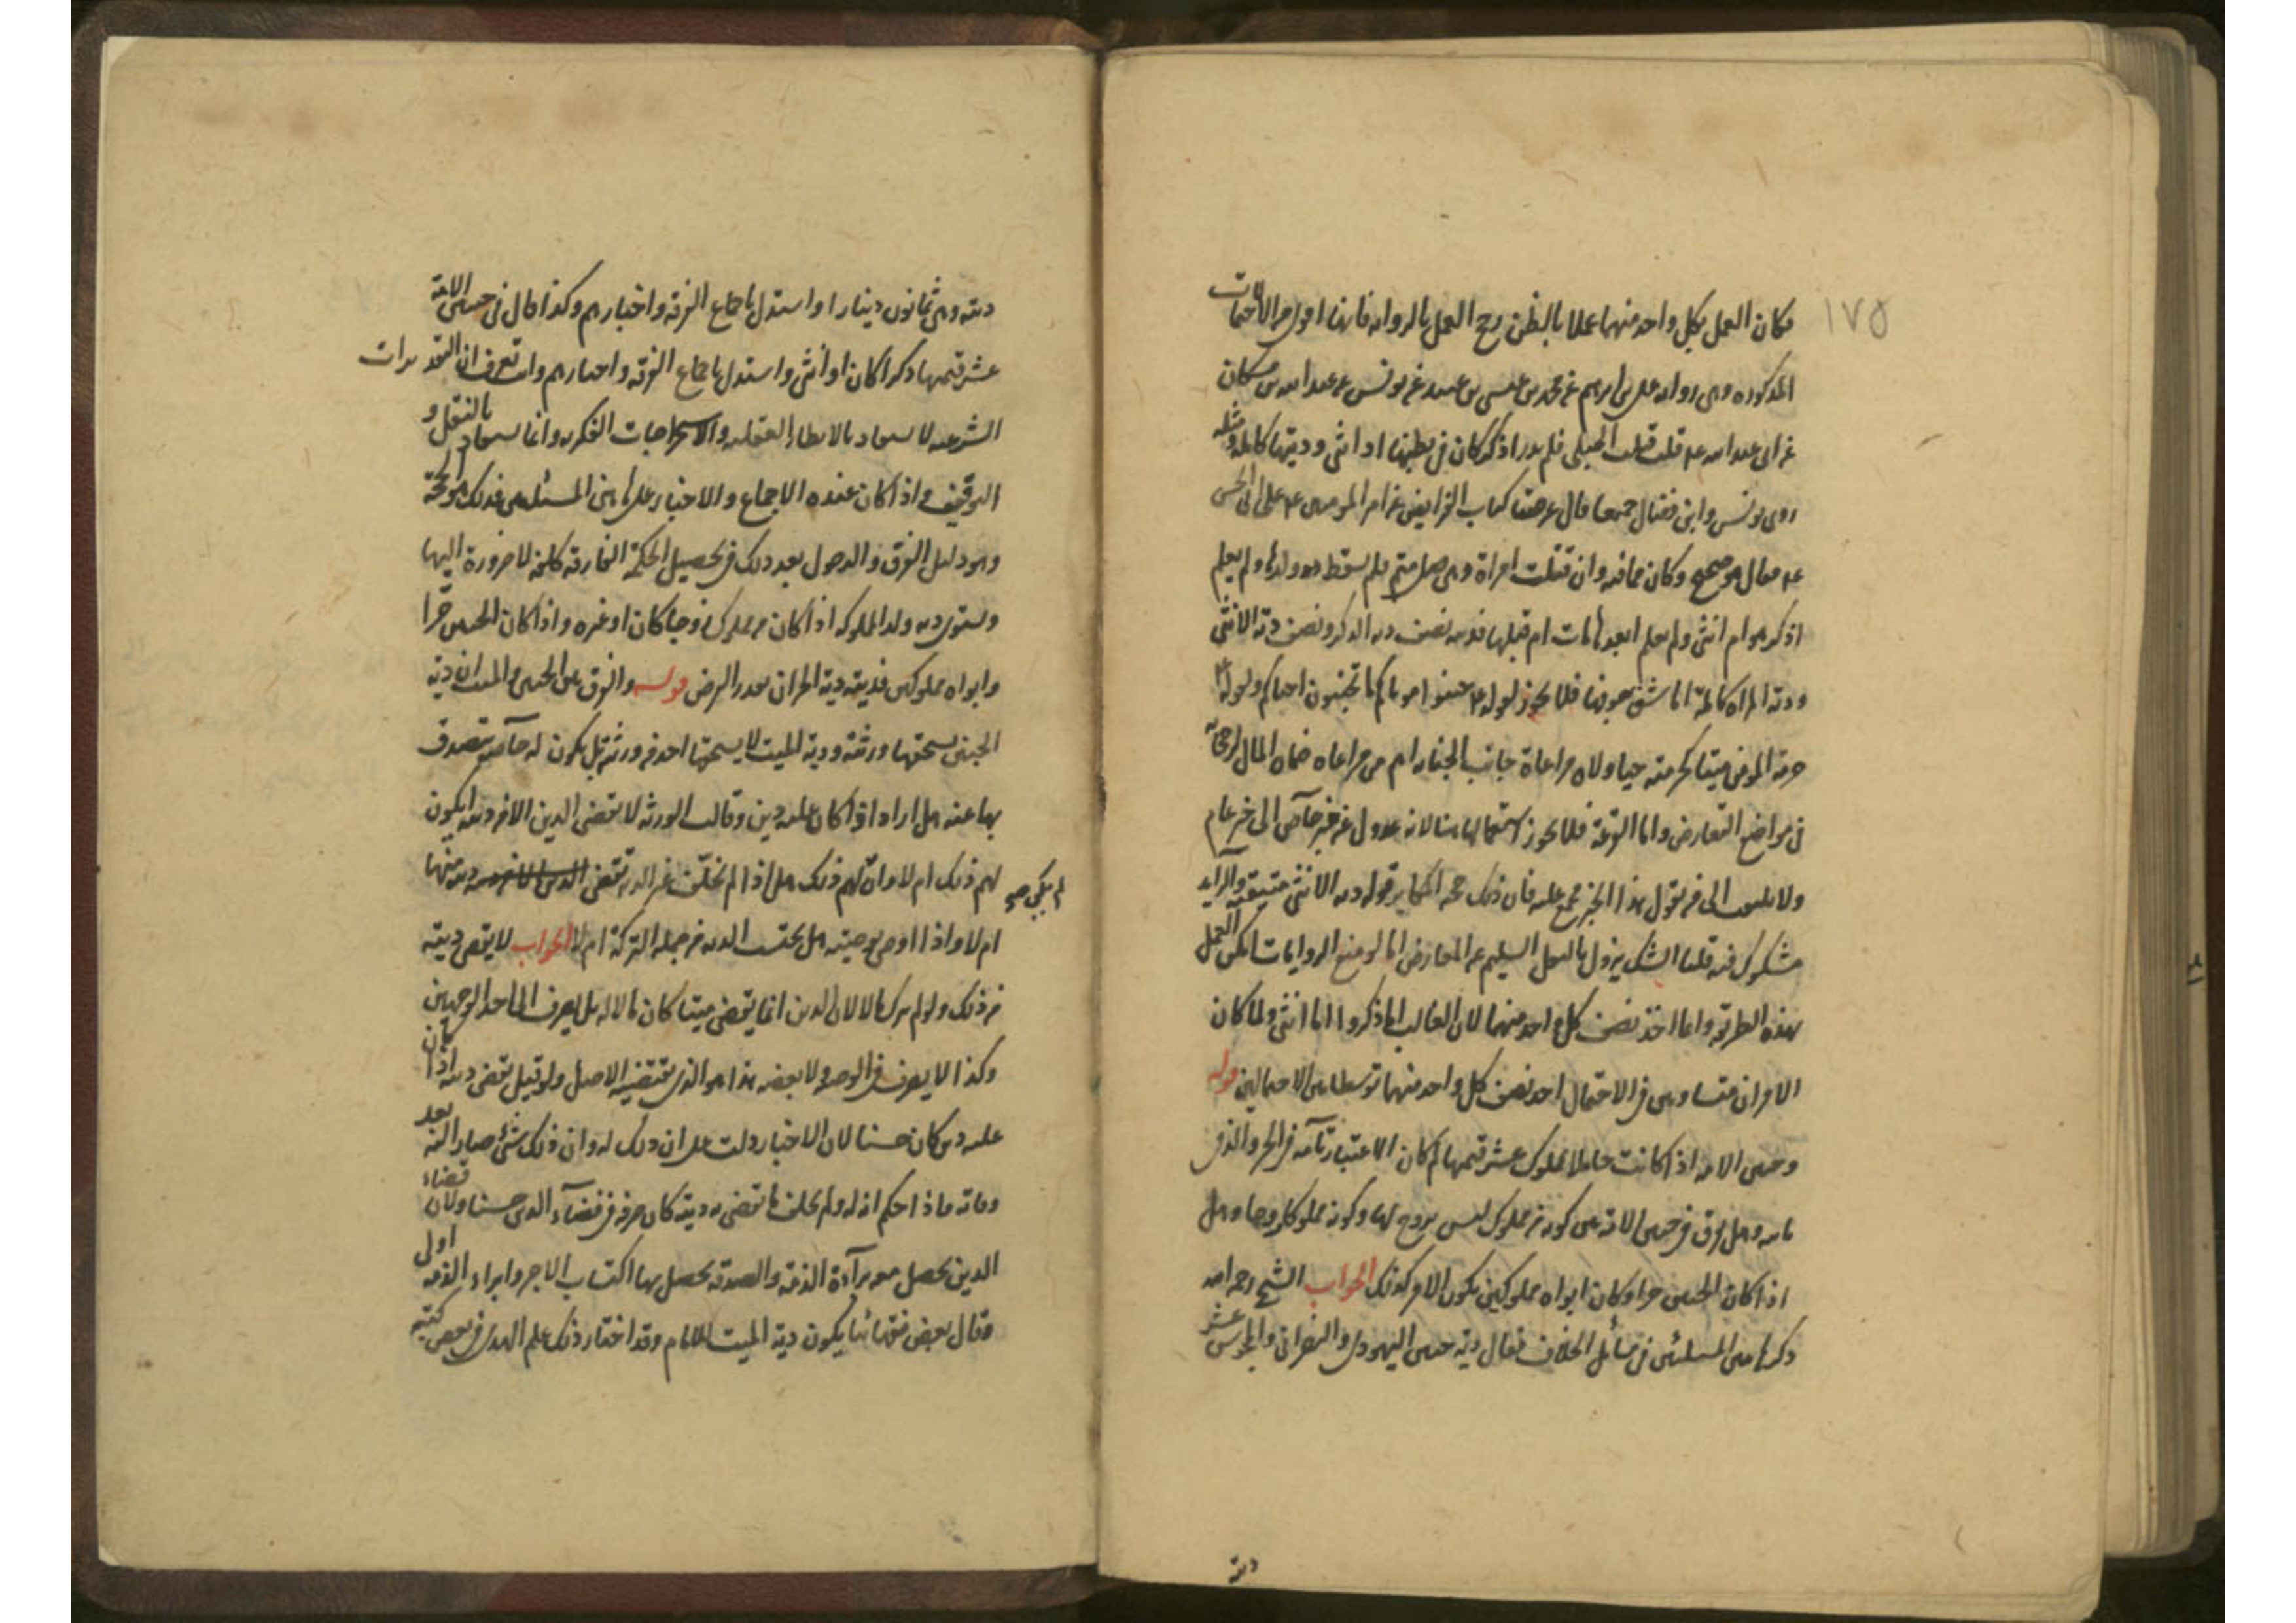 ١٧٥
فكان العمل بكل واحد منهما عملا بالظن رجح العمل بالرواية فانها اولى من الاحتمالات
المذكورة وهي رواية علي بن ابرهيم عن محمد بن عيسى بن عبيد عن يونس عن عبد الله بن مسكان
عن ابي عبد الله عم قلت قتلت الحبلى فلم يدر اذكر كان في بطنها او انثى وديتها كاملة ومثله
روى يونس وابن فضال جميعا قال عرضنا كتاب الفرايض عن امير المومنين عم على ابي الحسن
عم فقال هو صحيح وكان مما فيه وان قتلت امراة وهي حبلى متم فلم يسقط ولدها ولم يعلم
اذكر هو ام انثى ولم يعلم ابعدها مات ام قبلها فديته نصف دية الذكر ونصف دية الانثى
ودية المراة كاملة اما شق جوفها فلا يجوز لقوله عم جنبوا امواتكم ما تجنبون احياكم ولقوله عم
حرمة المومن ميتا كحرمته حيا ولان مراعاة جانب الجناية ام من مراعاة ضمان المال
في مواضع التعارض واما القرعة فلا يجوز استعمالها هنا لانه عدول عن خبر خاص الى خبر عام
ولا يلتفت الى من يقول هذا الخبر مجمع عليه فان ذلك حجة قوله دية الانثى متيقنة والزايد
مشكوك فيه قلنا الشك يزول بالنقل السليم عن المعارض اما لو منع الروايات امكن العمل
بهذه الطريقة وانما اخذ نصف كل واحد منهما لان الغالب اما ذكر واما انثى ولما كان
الامران متساويين في الاحتمال اخذ نصف كل واحد منهما توسطا بين الاحتمالين قوله
وجنين الامة اذا كانت حاملا بمملوك عشر قيمتها كان الاعتبار تامة في الحر والذي
تامة وهل فرق في جنين الامة بين كونه من مملوك ليس بزوج لها وكونه مملوكا زوجا وهل
اذا كان الجنين حرا وكان ابواه مملوكين يكون الامر كذلك الجواب الشيخ رحمه الله
ذكر هاتين المسئلتين في مسائل الخلاف فقال دية جنين اليهودي والنصراني والمجوسي عشر
ديته
ديته وهي ثمانون دينارا واستدل باجماع الفرقة واخبارهم وكذا قال في جنين الامة
عشر قيمتها ذكرا كان او انثى واستدل باجماع الفرقة واخبارهم وانت تعرف ان التقديرات
الشرعية لا يستفاد بالانظار العقلية والاستخراجات الفكرية وانما يستفاد بالنقل و
التوقيف واذا كان عنده الاجماع والاخبار على هاتين المسئلتين فذلك هو الحجة
وهو دليل الفرق والدخول بعد ذلك في تحصيل الحكمة الفارقة كلفة لا ضرورة اليها
ويستوي دية ولد المملوكة اذا كان من مملوك زوجا كان او غيره واذا كان الجنين حرا
وابواه مملوكين فديته دية الحر ان تقدر الفرض قوله والفرق بين الجنين والميت ان دية
الجنين يستحقها ورثته ودية الميت لا يستحقها احد من ورثته بل يكون له خاصة يتصدق
بها عنه هل اراد اذا كان عليه دين وقالت الورثة لا تقضي الدين الا من ديته ايكون
لهم ذلك ام لا وان لم يكن لهم ذلك هل اذا لم يخلف غير الدية تقضي الدين ديته منها
ام لا واذا اوصى بوصيته هل يحتسب الدية من جملة التركة ام لا الجواب لا يقضى دينه
من ذلك ولو لم يترك مالا لان الدين انما يقضى ميتا كان مالا له بل يصرف الى احد الوجهين
وكذا لا يصرف في الوصية ولا بعضه هذا هو الذي يقتضيه الاصل ولو قيل يقضى دينه اذا كان
عليه دين كان حسنا لان الاخبار دلت على ان ذلك له وان ذلك شئ صار اليه بعد
وفاته فاذا حكم انه له ولم يخلف ما تقضى به ديته كان صرفه في قضاء الدين حسنا ولان قضاء
الدين يحصل معه براءة الذمة والصدقة يحصل بها اكتساب الاجر وابراء الذمة اولى
وقال بعض فقهائنا يكون دية الميت للامام وقد اختار ذلك علم الهدى في بعض كتبه